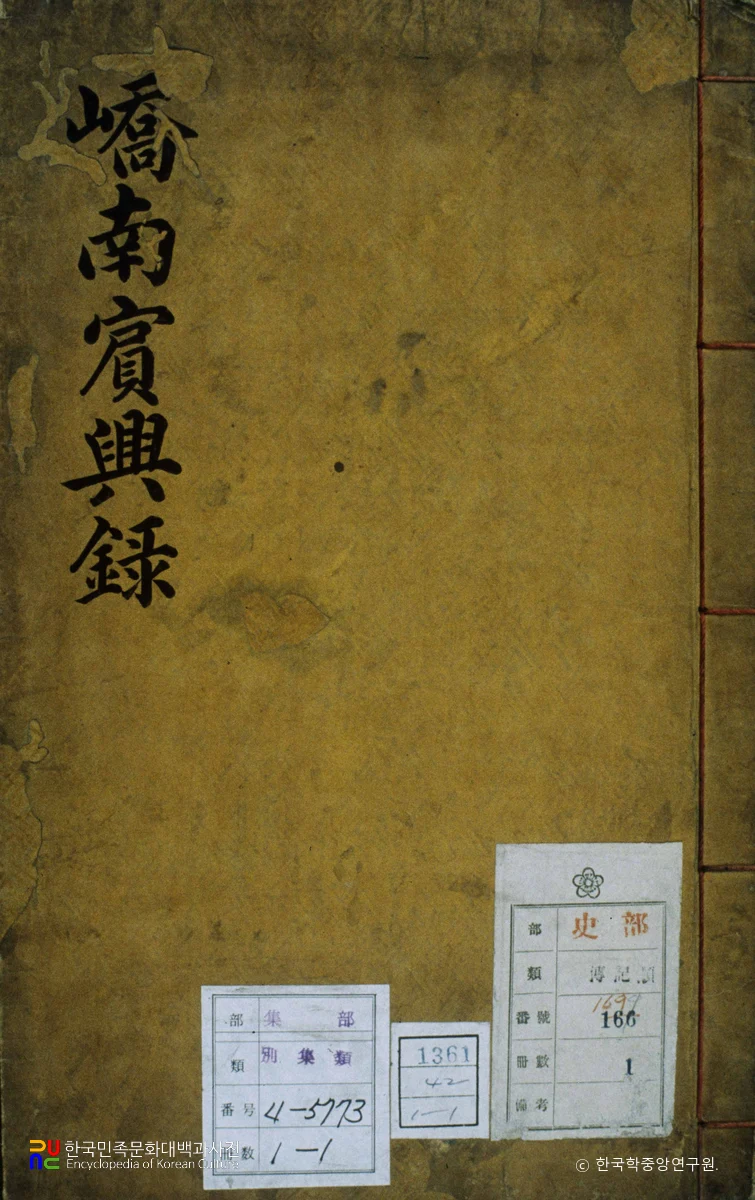 嶠南賓興錄
部 史部
類 傳記類
番號 166
1699
冊數 1
備考
部 集部
類 別集類
番号 4-5773
冊數 1-1
1361
42
1-1
한국민족문화대백과사전
Encyclopedia of Korean Culture
ⓒ 한국학중앙연구원.